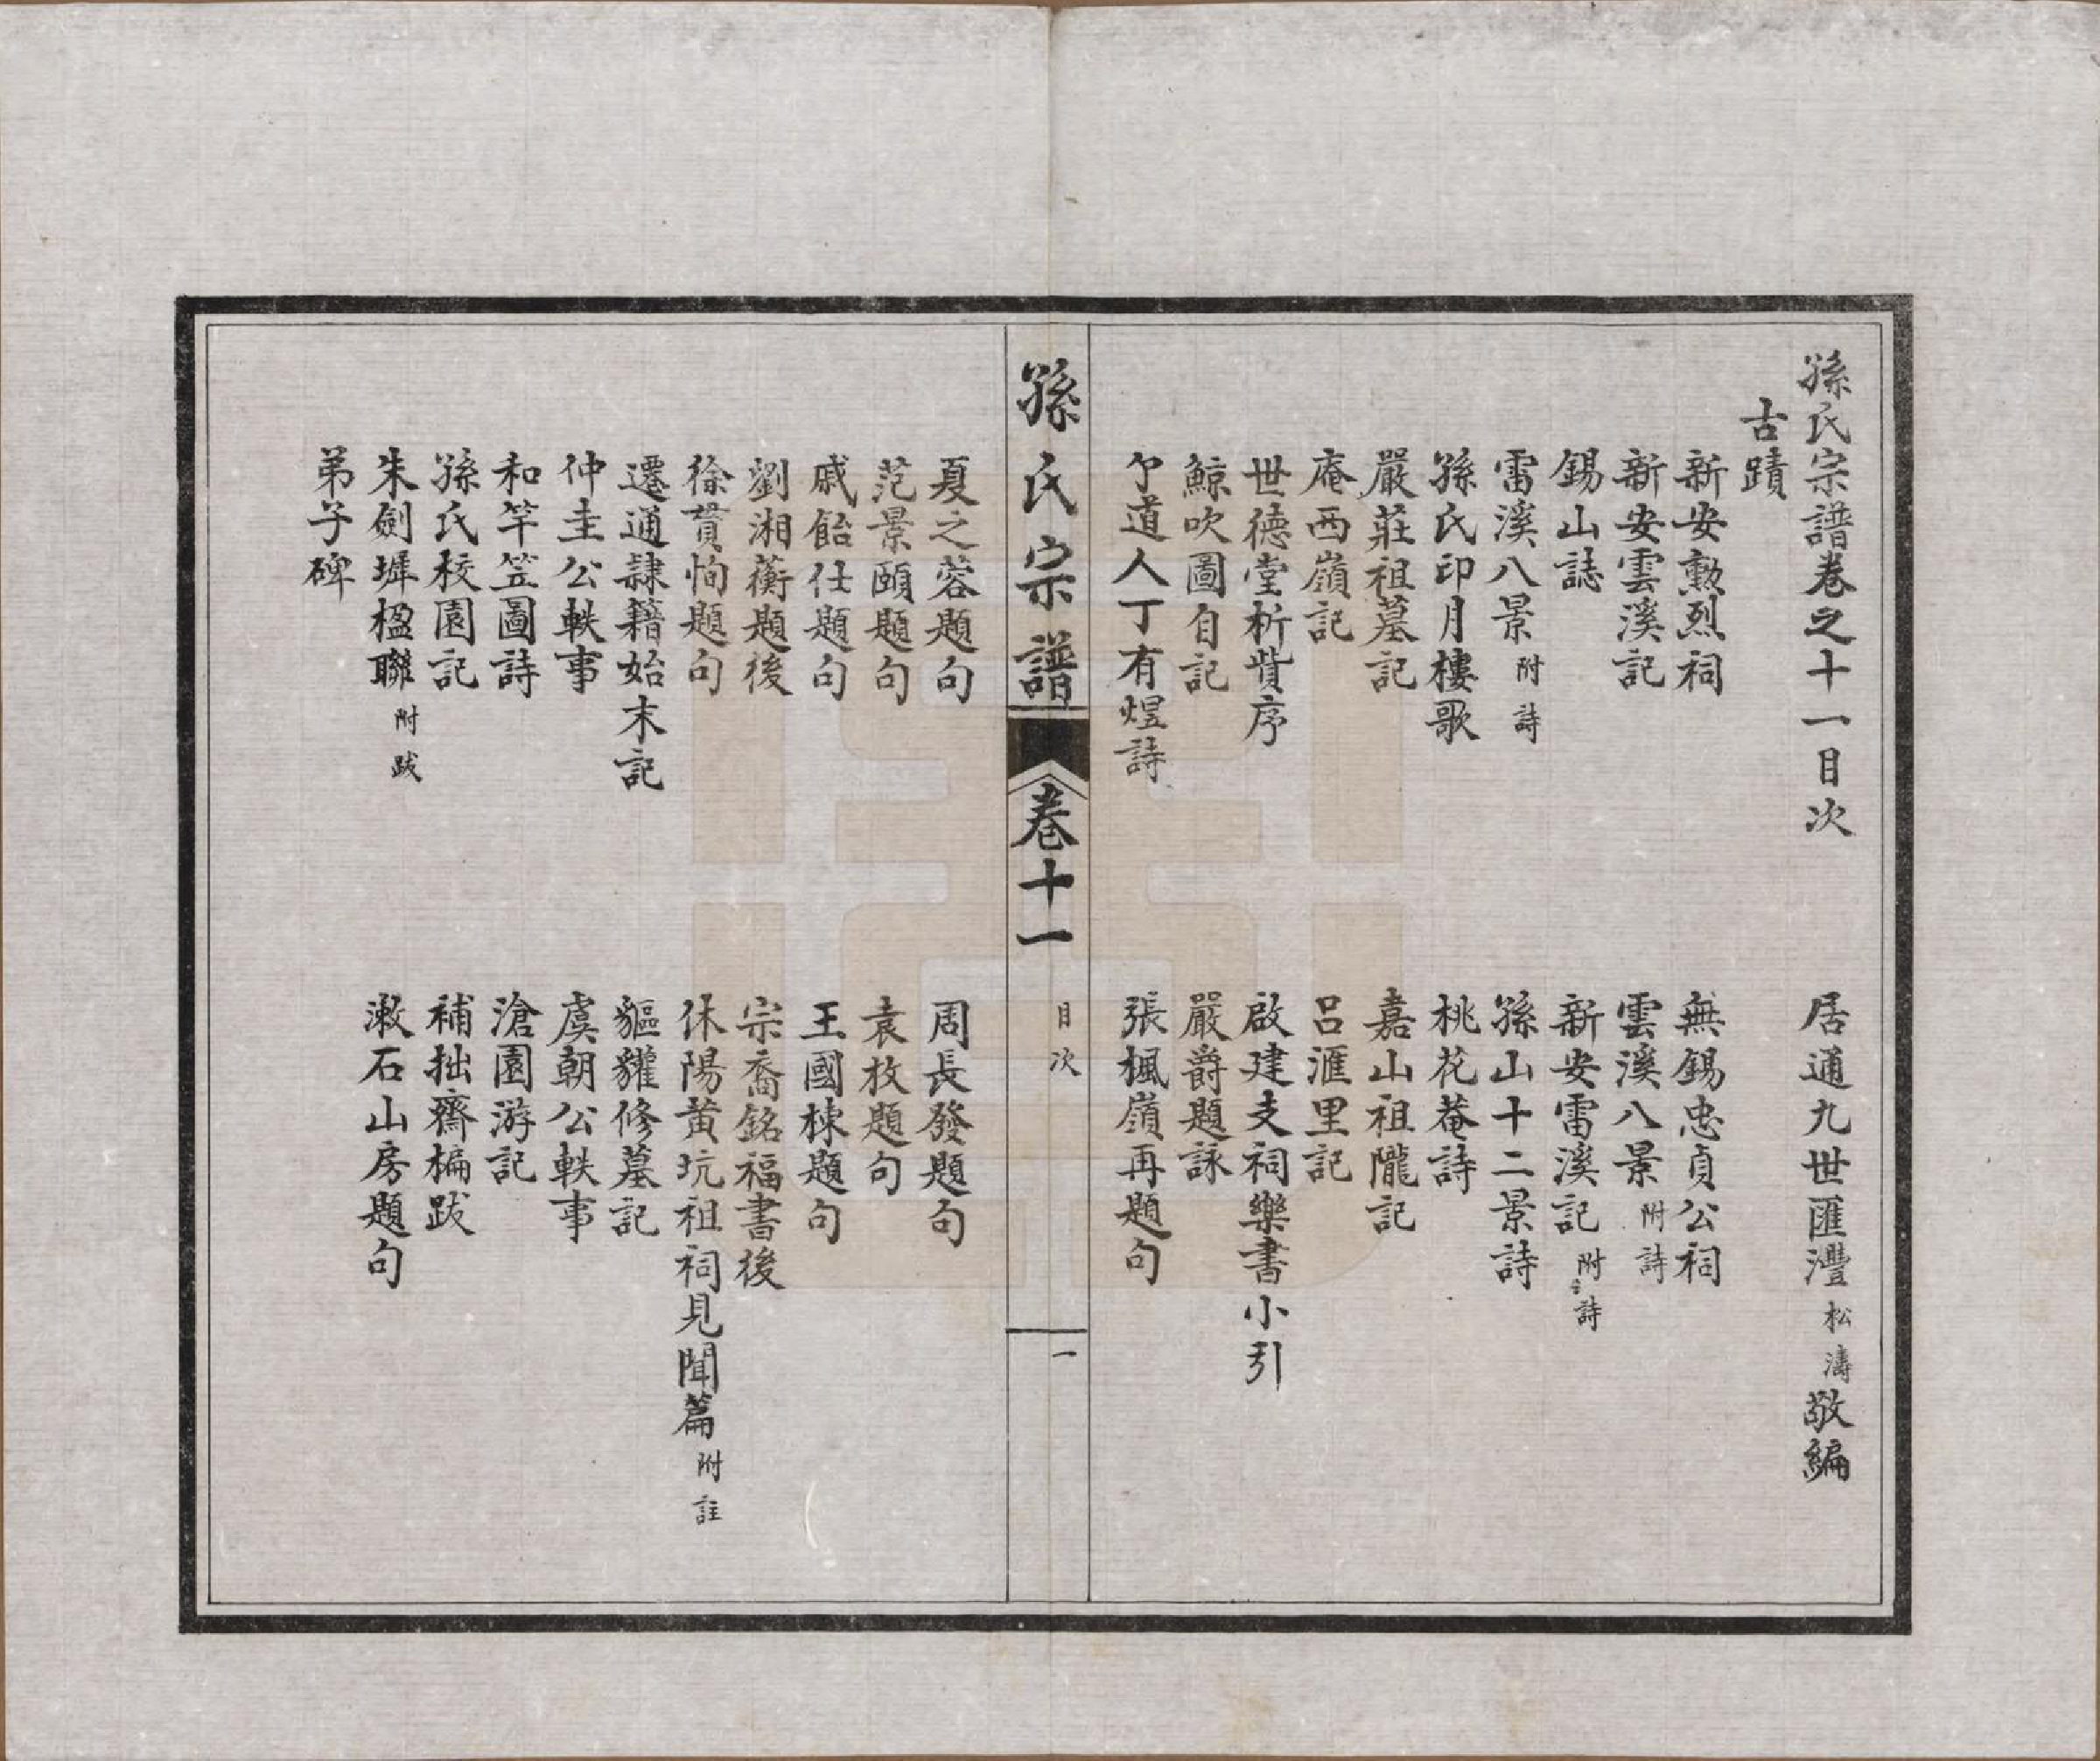 孫氏宗譜卷之十一目次 居通九世匯灃松濤敬編
古蹟
新安勲烈祠 無錫忠貞公祠
新安雲溪記 雲溪八景附詩
錫山誌 新安雷溪記附詩
雷溪八景附詩 孫山十二景詩
孫氏印月樓歌 桃花菴詩
嚴莊祖墓記 嘉山祖隴記
庵西嶺記 呂滙里記
世德堂析貲序 啟建支祠樂書小引
鯨吹圖自記 嚴爵題詠
道人丁有煜詩 張楓嶺再題句
孫氏宗譜 卷十一 目次 一
夏之蓉題句 周長發題句
范景頤題句 袁枚題句
戚飴仕題句 王國棟題句
劉湘蘅題後 宗喬銘福書後
徐貫恂題句 休陽黄坑祖祠見聞篇附註
遷通隷籍始末記 貙貛修墓記
仲圭公軼事 虞朝公軼事
和竿笠圖詩 滄園游記
孫氏校園記 補拙齋楄跋
朱劍墀楹聯附跋 漱石山房題句
弟子碑